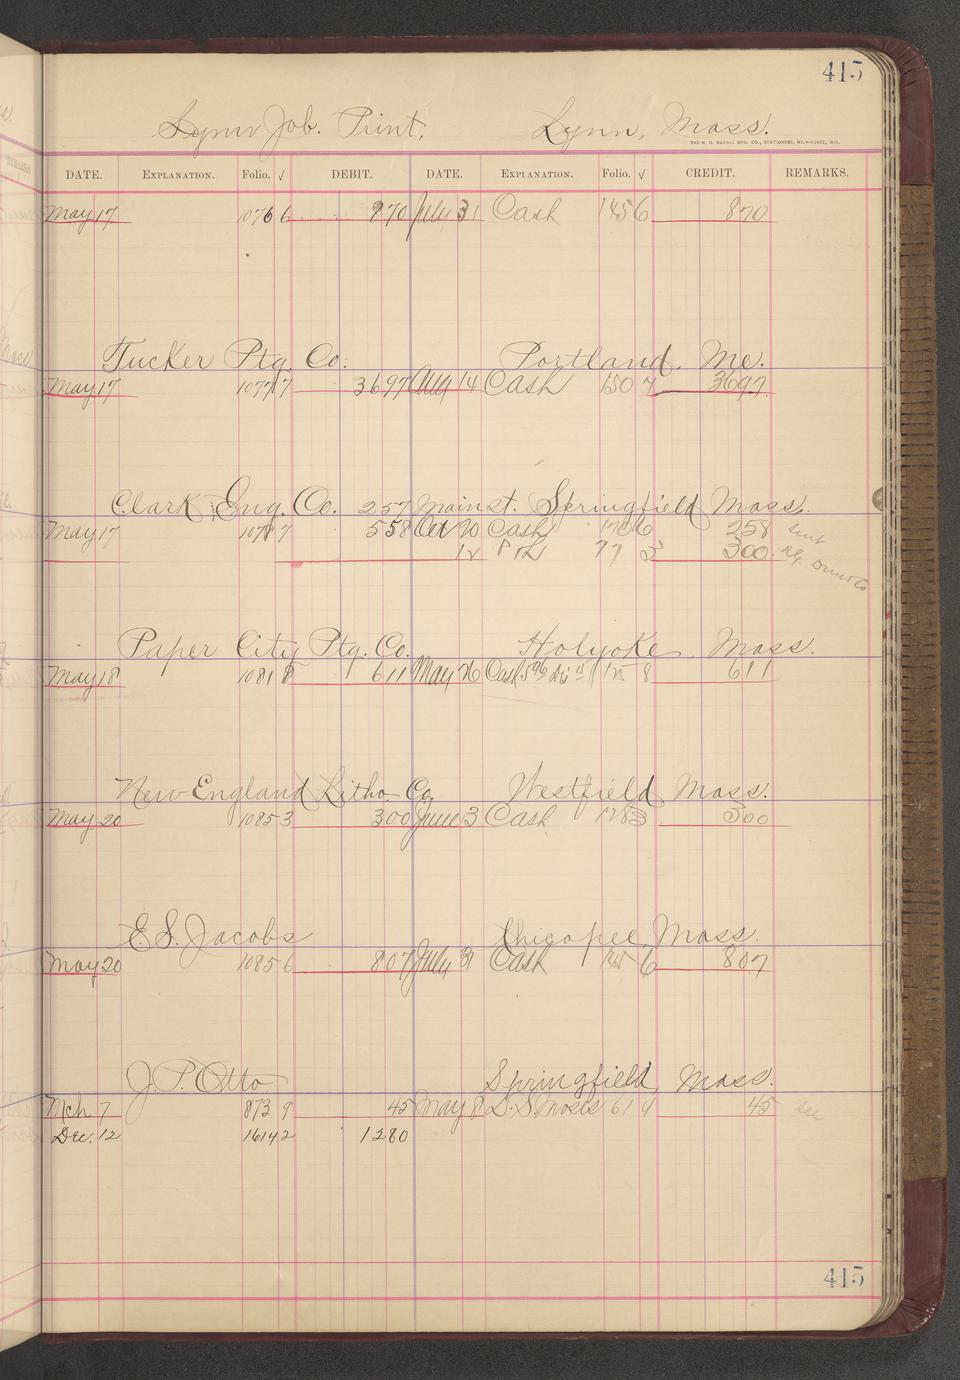 415
Lynn Job. Print, Lynn, Mass.
THE H. G. RAZALL MFG. CO., STATIONERS, MILWAUKEE, WIS.
DATE. EXPLANATION. Folio. √ DEBIT. DATE. EXPLANATION. Folio. √ CREDIT. REMARKS.
May 17 1076 6 870 July 31 Cash 145 6 870
Tucker Ptg. Co. Portland, Me.
May 17 1077 7 3697 Aug 14 Cash 150 7 3697
Clark Eng. Co. 257 Main st. Springfield Mass.
May 17 1078 7 558 Oct 20 Cash 170 6 258
12 77 300
Paper City Ptg. Co. Holyoke, Mass.
May 18 1081 8 611 May 26 Cash 5% 125 8 611
New England Litho Co. Westfield, Mass.
May 20 1085 3 300 June 3 Cash 128 3 300
E. S. Jacobs Chicopee, Mass.
May 20 1085 6 807 July 31 Cash 145 6 807
J. P. Otto Springfield, Mass.
Mch 7 873 9 45 May 8 61 9 45
Dec. 12 1614 2 1280
415